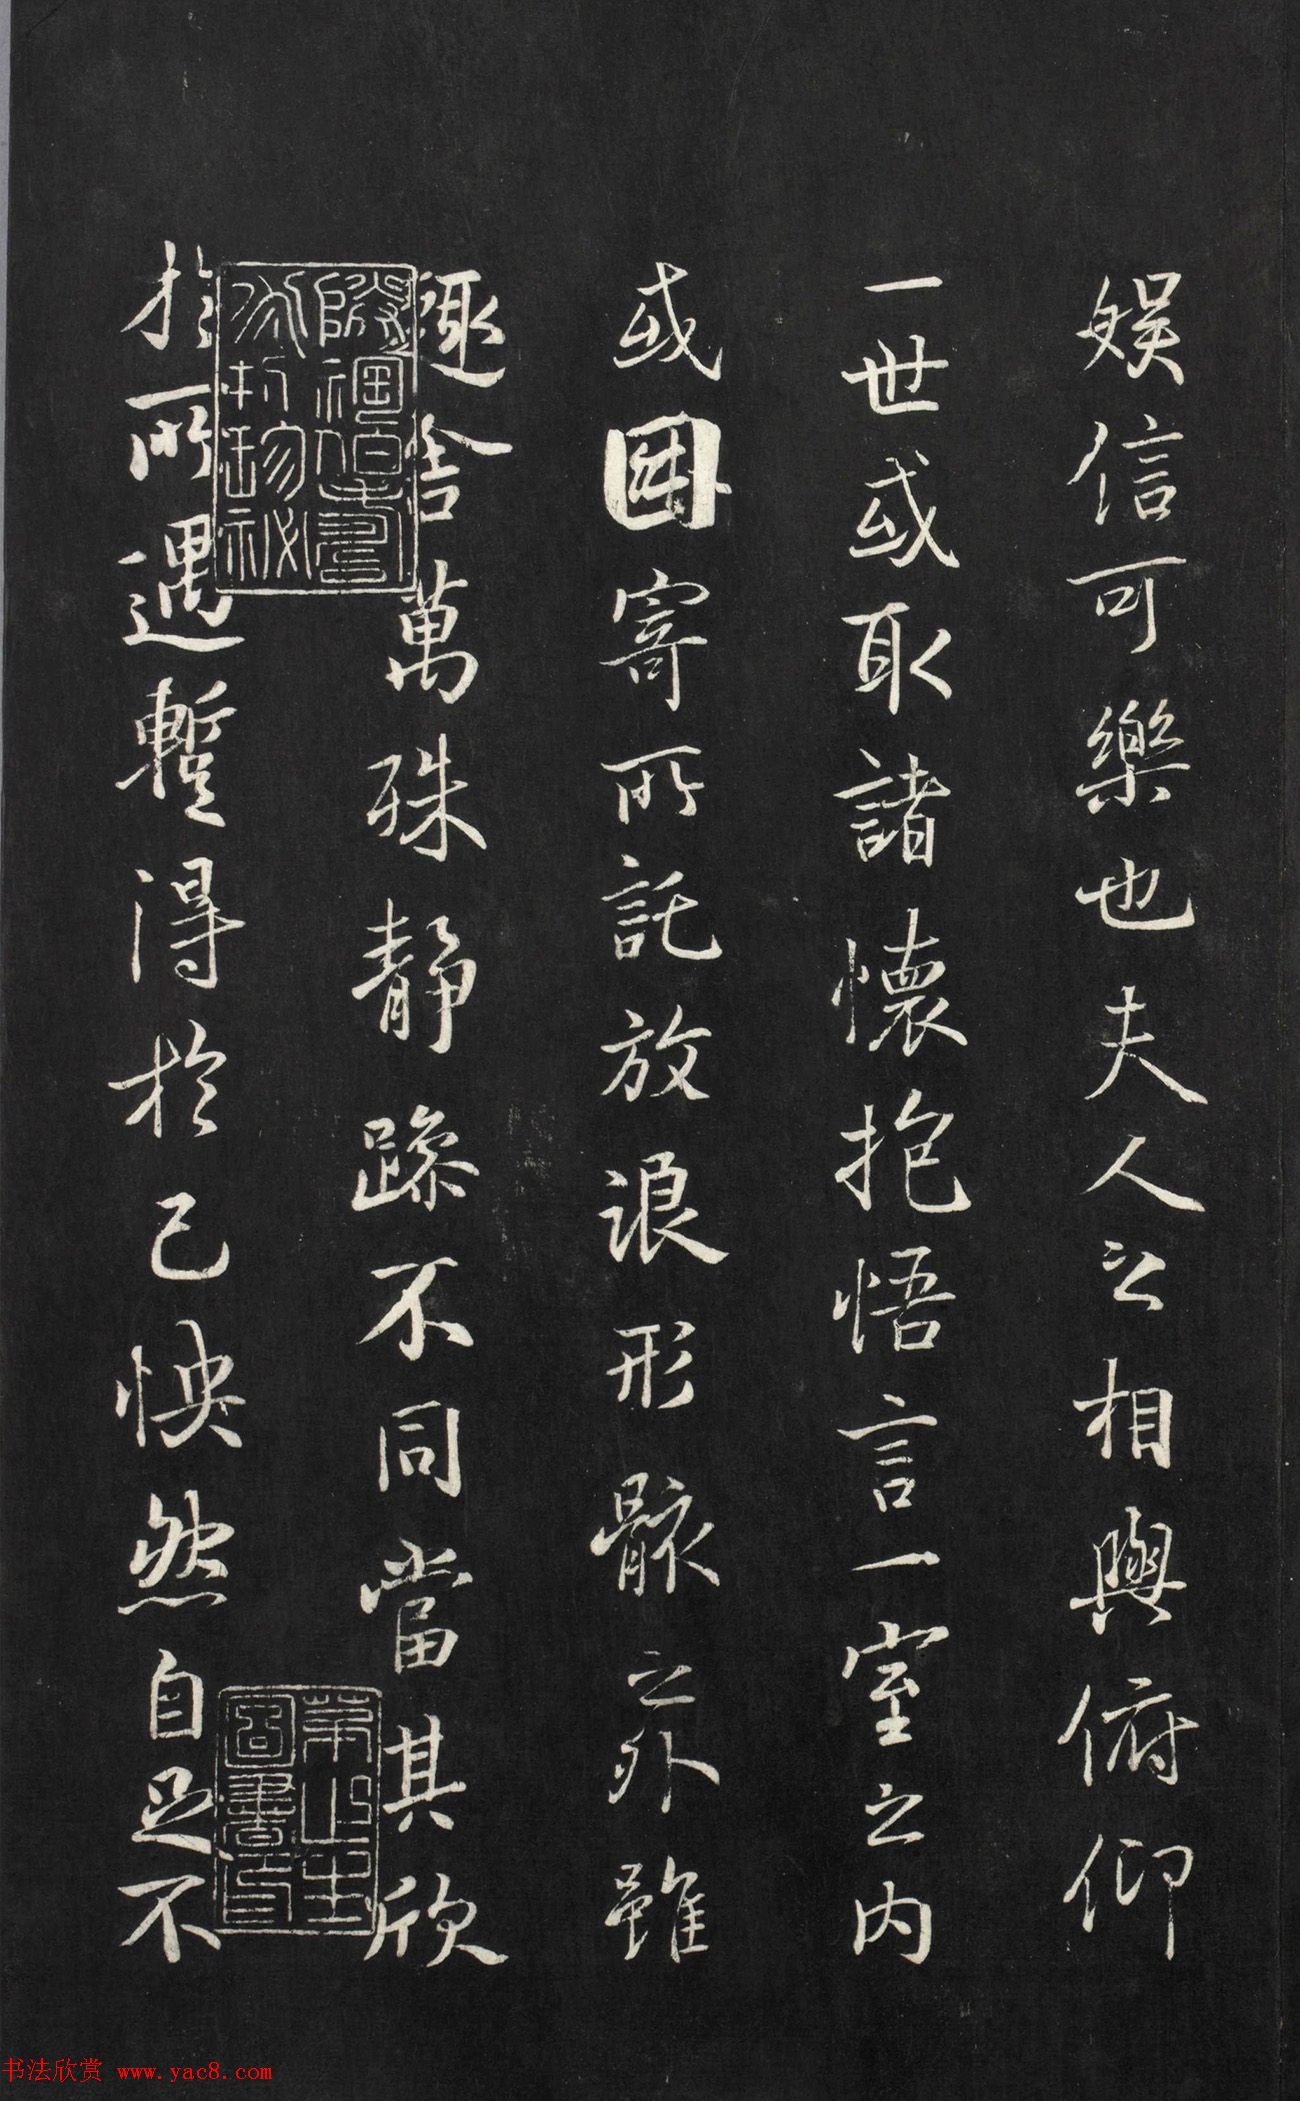 娛信可樂也夫人之相與俯仰
一世或取諸懷抱悟言一室之內
或因寄所託放浪形骸之外雖
趣舍萬殊靜躁不同當其欣
於所遇蹔得於己怏然自足不
圖書印
书法欣赏 www.yac8.com